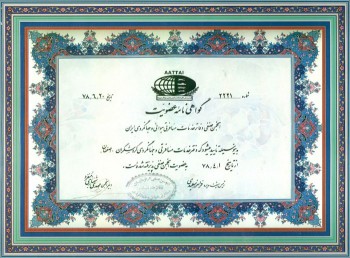 AATTAI
شماره ۲۲۲۱
تاریخ ۷۸.۶.۲۰
گواهی نامه عضویت
انجمن صنفی دفاتر خدمات مسافرتی هوائی و جهانگردی ایران
بدینوسیله تایید میشود که دفتر خدمات مسافرتی و جهانگردی
از تاریخ ۷۸.۴.۱ به عضویت انجمن صنفی پذیرفته شده است.